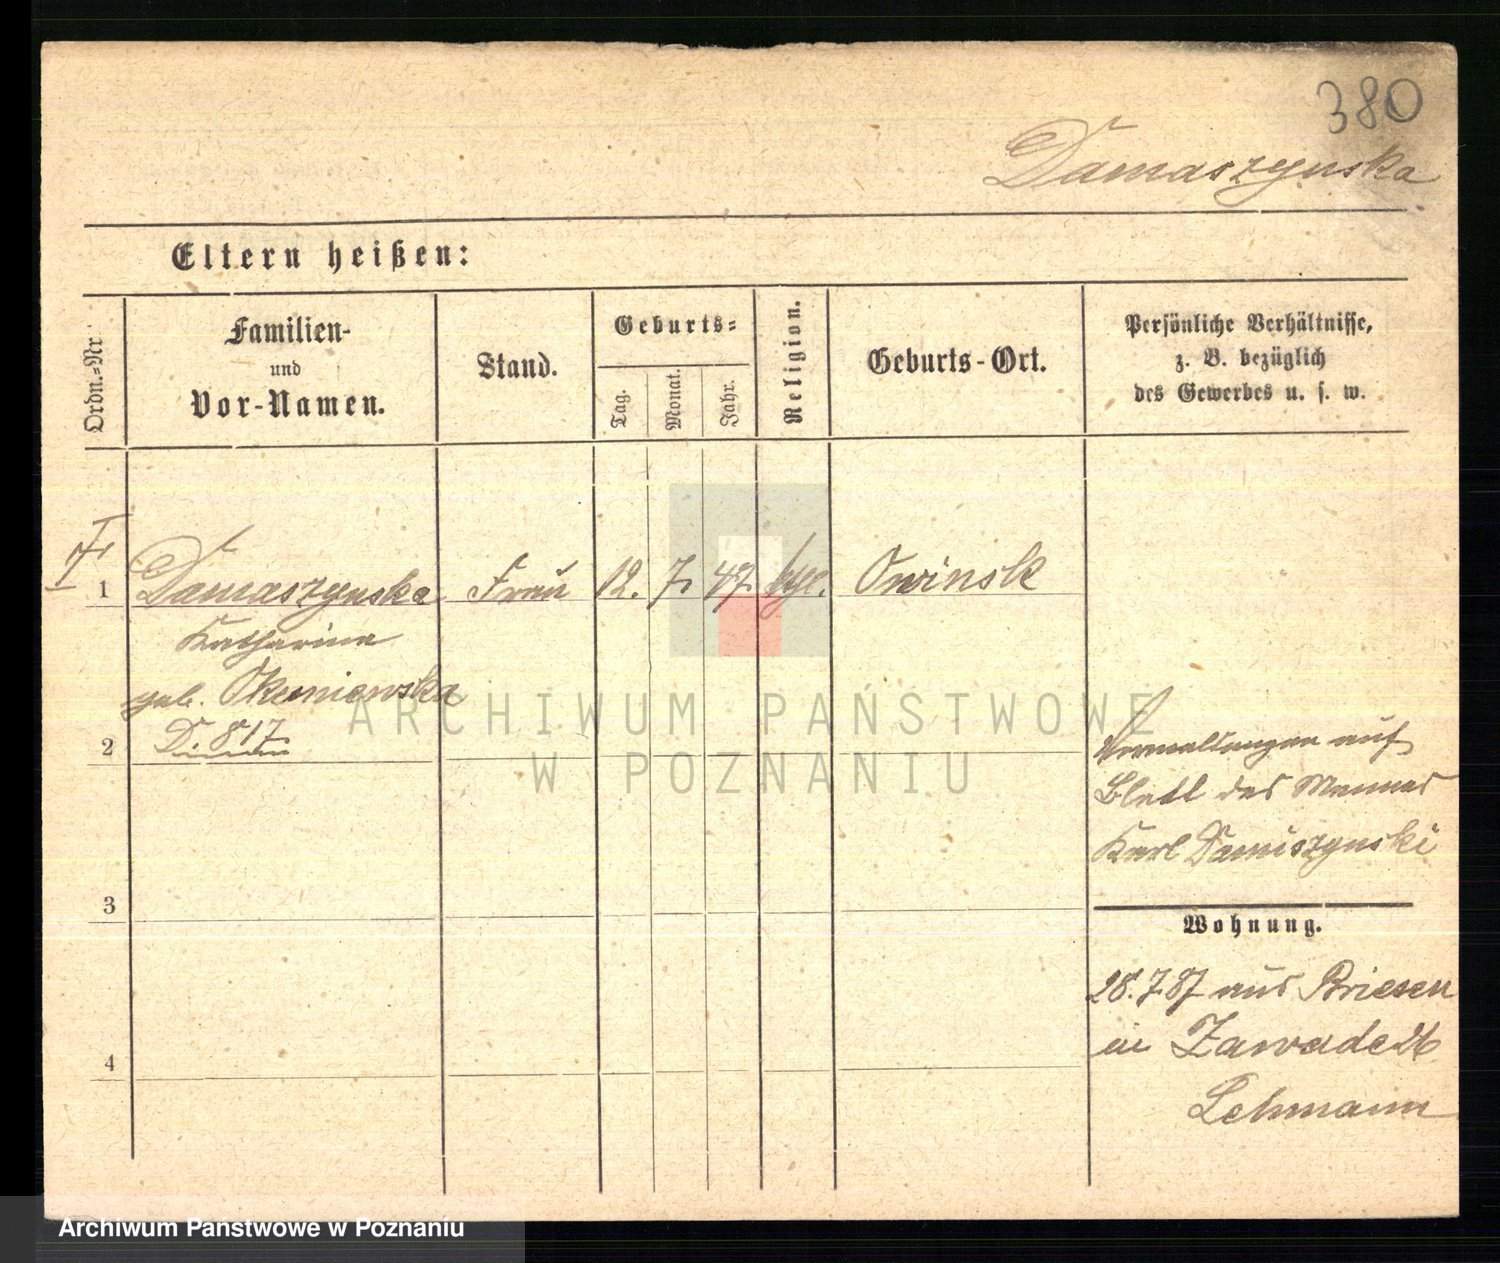 380
Damaszynska
Eltern heißen:
Ordn.-Nr.
Familien-
und
Vor-Namen.
Stand.
Geburts-
Tag.
Monat.
Jahr.
Religion.
Geburts-Ort.
Persönliche Verhältnisse,
z. B. bezüglich
des Gewerbes u. s. w.
1 Damaszynska Frau 12. 7. 47. Owinsk
Katharina
geb.
2 D. 817
ARCHIWUM PAŃSTWOWE
W POZNANIU
auf
Blatt des Mannes
Karl Damaszynski
3
Wohnung.
28.7.87 aus Briesen
in Zawade 26
4
Lehmann
Archiwum Państwowe w Poznaniu